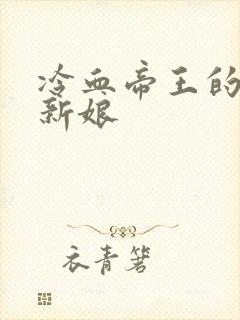 冷血帝王的
新娘
衣青箬